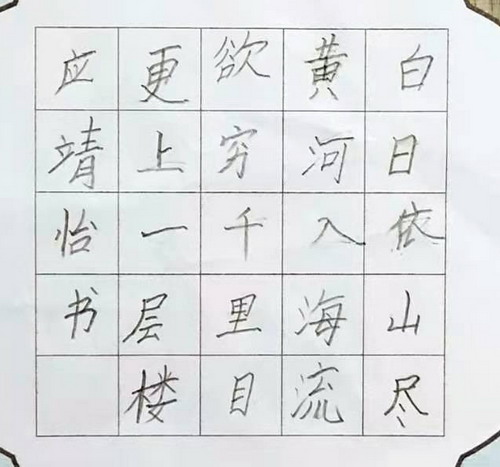 白日依山尽
黄河入海流
欲穷千里目
更上一层楼
应靖怡书